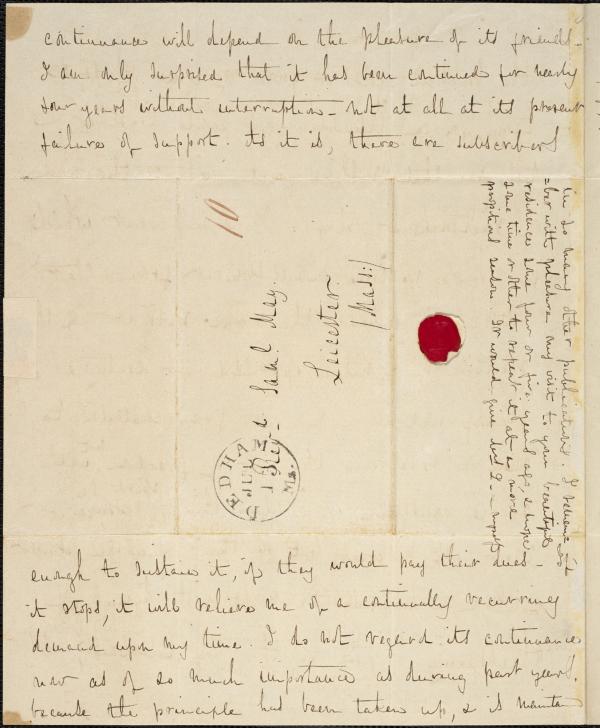 continuance will depend on the pleasure of its friends.
I am only surprised that it has been continued for nearly
four years without interruption - not at all at its present
failure of support. As it is, there are subscribers
10
Rev. Saml. May.
Leicester.
/Mass:/
DEDHAM
MS.
JUL
enough to sustain it, if they would pay their dues -
it stops, it will relieve me of a continually recurring
demand upon my time. I do not regard its continuance
now as of so much importance as during past years,
because the principle has been taken up, & is maintain
in so many other publications. I remem-
-ber with pleasure my visit to your
residence some four or five years ago, & hope
some time or other to repeat it at a more
propitious season. It would give